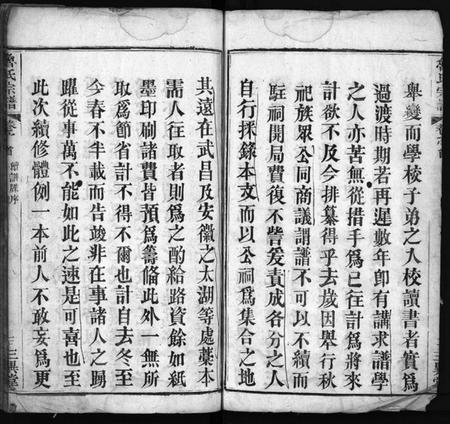 舉變而學校子弟之入校讀書者實爲
過渡時期若再遲數年卽有講求譜學
之人亦苦無從措手爲已往計爲將來
計欲不及今排纂得乎去歲因舉行秋
祀族眾公同商議謂譜不可以不續而
駐祠開局費復不訾爰責成各分之人
自行採錄本支而以公祠爲集合之地
其遠在武昌及安徽之太湖等處藁本
需人往取者則爲之酌給路資餘如紙
墨印刷諸費皆預爲籌備此外一無所
取爲節省計不得不爾也計自去冬至
今春不半載而告竣非在事諸人之踴
躍從事萬不能如此之速是可喜也至
此次續修體例一本前人不敢妄爲更
魯氏宗譜
卷首
續譜序
三異堂